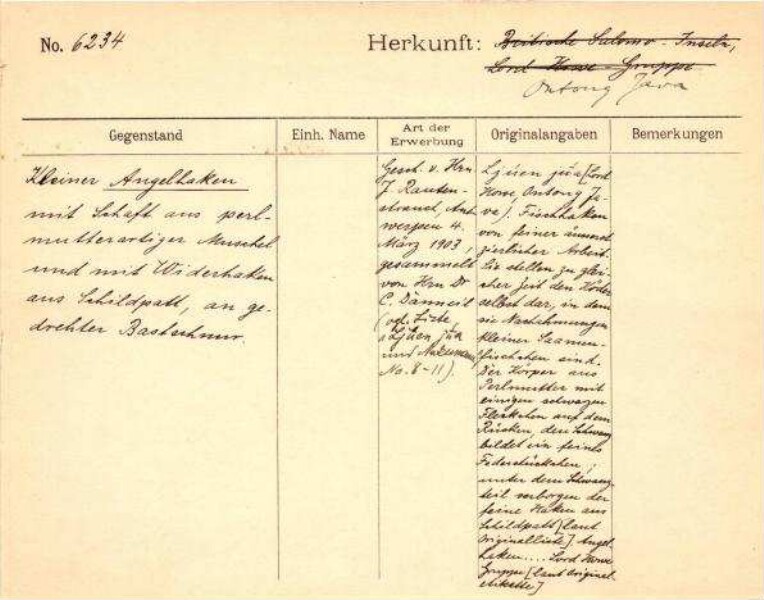 No. 6234
Herkunft: Britische Salomo-Inseln,
Lord Howe-Gruppe
Ontong Java
Gegenstand
Einh. Name
Art der
Erwerbung
Originalangaben
Bemerkungen
Kleiner Angelhaken
mit Schaft aus perl-
mutterartiger Muschel
und mit Widerhaken
aus Schildpatt, an ge-
drehter Bastschnur.
Gesch. v. Hrn
J. Rauten-
strauch, Ant-
werpen 4.
März 1903,
gesammelt
von Hrn Dr
C. Danneil
(vgl. Liste
Ljuen jua
und
No. 8-11).
Ljuen jua [Lord
Howe, Ontong Ja-
va). Fischhaken
von feiner äusserst
zierlicher Arbeit.
Sie stellen zu glei-
cher Zeit den Köder
selbst dar, in dem
sie Nachahmungen
kleiner Saamen-
fischchen sind.
Der Körper aus
Perlmutter mit
einigen schwarzen
Fleckchen auf dem
Rücken, den Schwanz
bildet ein feines
Federstückchen;
unter dem Schwanz-
teil verborgen der
feine Haken aus
Schildpatt [laut
Originalliste] Angel-
haken.... Lord Howe
Gruppe [laut Original-
etikette]